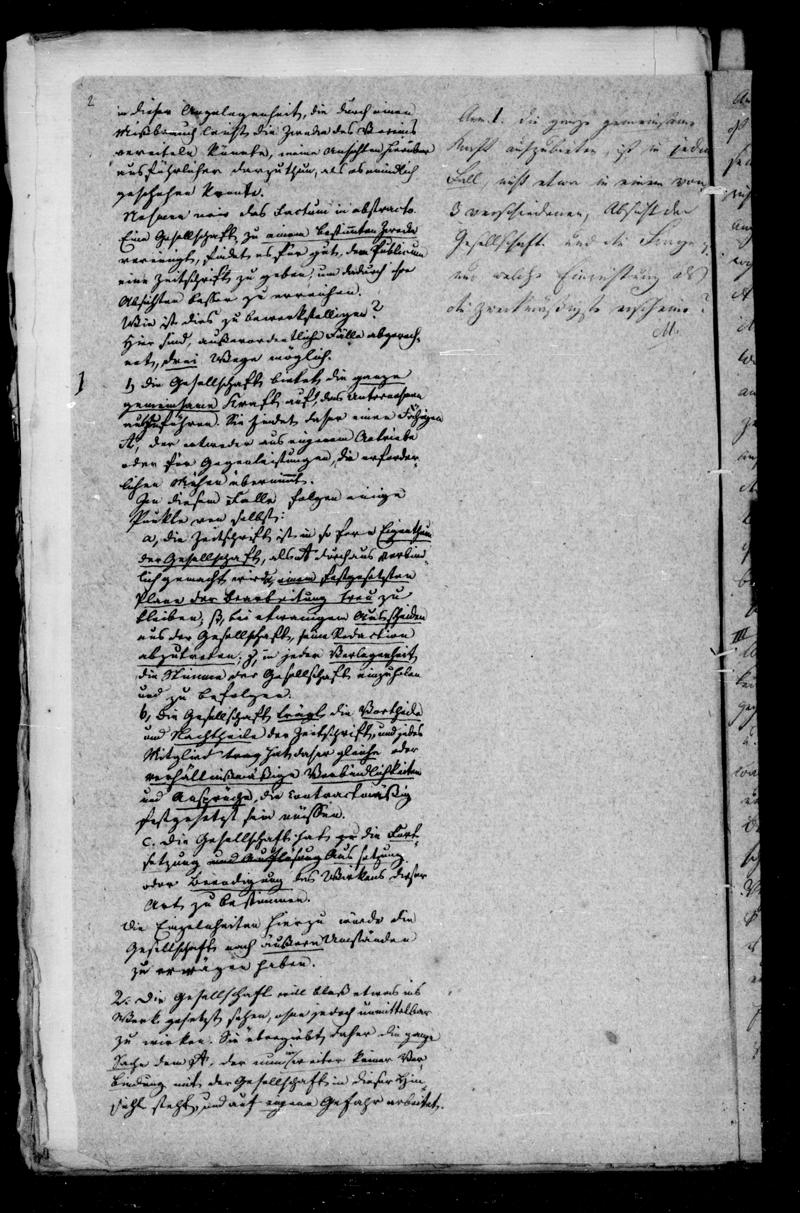 2
in dieser Angelegenheit, die durch einen
Mißbrauch leicht die Zwecke des Vereins
vereiteln könnte, meine Ansichten hierüber
ausführlicher darzuthun, als es mündlich
geschehen konnte.
Nehmen wir das Factum in abstracto.
Eine Gesellschaft, zu einem bestimmten Zwecke
vereinigt, findet es für gut, dem Publicum
eine Zeitschrift zu geben, um dadurch ihre
Absichten besser zu erreichen.
Wie ist dies zu bewerkstelligen?
Hier sind, außerordentliche Fälle abgerech-
net, drei Wege möglich.
1
1, die Gesellschaft bietet die ganze
gemeinsame Kraft auf, das Unternehmen
auszuführen. Sie findet daher einen Fähigen
A, der entweder aus eigenem Antriebe
oder für Gegenleistungen, die erforder-
lichen Mühen übernimmt.
In diesem Falle folgen einige
Punkte von selbst:
a, die Zeitschrift ist in so fern Eigenthum
der Gesellschaft, als A durchaus verbind-
lich gemacht wird, einem festgesetzten
Plane der Bearbeitung treu zu
bleiben; β, bei etwanigem Ausscheiden
aus der Gesellschaft, seine Redaction
abzutreten; γ, in jeder Verlegenheit
die Stimme der Gesellschaft einzuholen
und zu befolgen.
b, die Gesellschaft trägt die Vortheile
und Nachtheile der Zeitschrift, und jedes
Mitglied hat daher gleiche oder
verhältnißmäßige Verbindlichkeiten
und Ansprüche, die contractmäßig
festgesetzt sein müssen.
c. die Gesellschaft hat die Fort-
setzung und Auflösung Aussetzung
oder Beendigung des Wirkens dieser
Art zu bestimmen.
Die Einzelnheiten hierzu würde die
Gesellschaft nach äußern Umständen
zu erwägen haben.
2. Die Gesellschaft will bloß etwas ins
Werk gesetzt sehen, ohne jedoch unmittelbar
zu wirken. Sie übergiebt daher die ganze
Sache dem A, der nun weiter keiner Ver-
bindung mit der Gesellschaft in dieser Hin-
sicht steht, und auf eigene Gefahr arbeitet.
Anm. 1. die ganze gemeinsame
Kraft aufzubieten, ist in jedem
Fall, nicht etwa in einem von
3 verschiedenen, Absicht der
Gesellschaft und die Frage
nur welche Einrichtung als
die zweckmäßigste erscheine?
M.